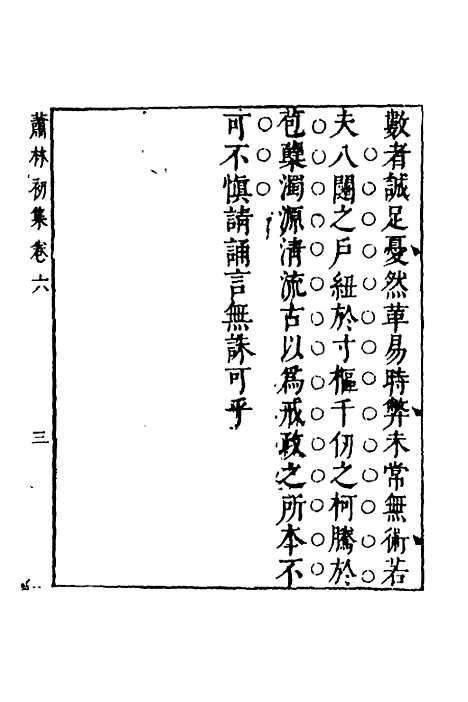 數者誠足憂然革易時弊未常無術若
夫八闥之戶紐於寸樞千仞之柯騰於
苞櫱濁源清流古以爲戒政之所本不
可不慎請誦言無誅可乎
蕭林初集卷六
三